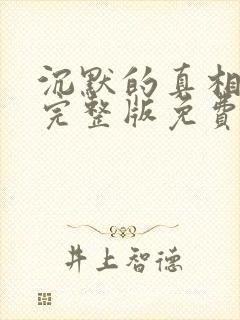 沉默的真相
完整版免費
井上智德